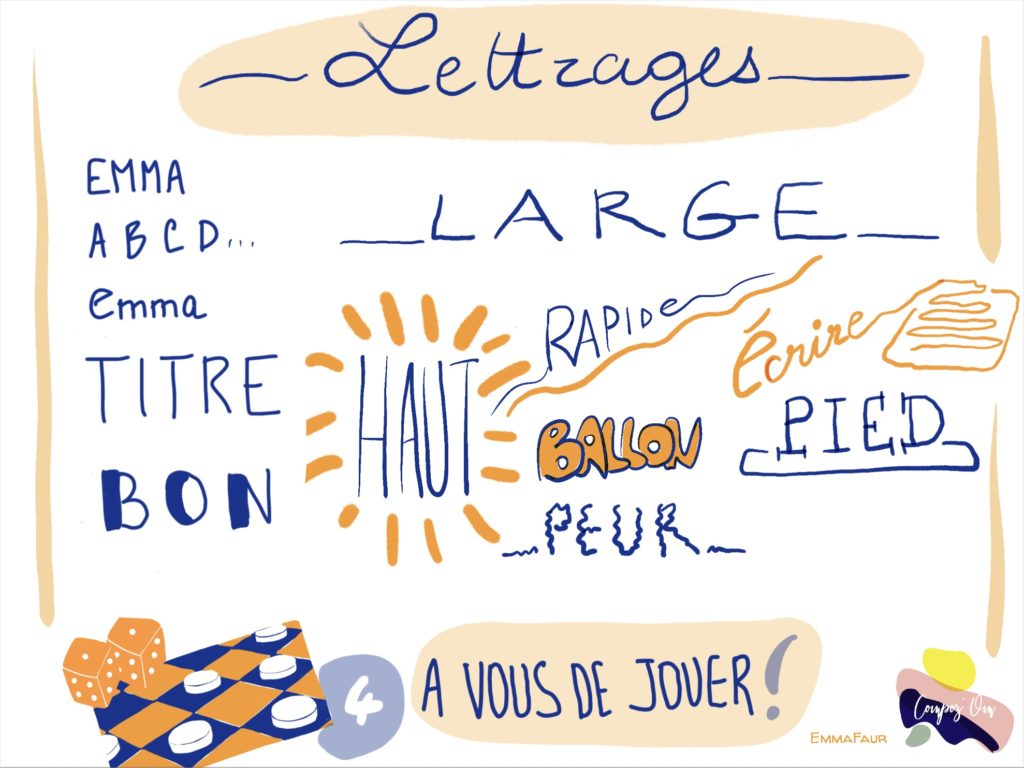 Lettrages
EMMA
A B C D...
emma
LARGE
TITRE
HAUT
RAPIDE
Écrire
BALLON
PIED
BON
PEUR
4
A VOUS DE JOUER !
EMMAFAUR